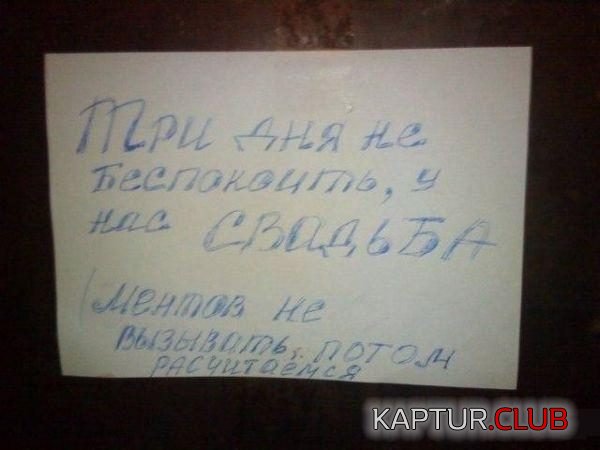 Три дня не
беспокоить, у
нас СВАДЬБА
Ментов не
вызывать, потом
расчитаемся
KAPTUR.CLUB